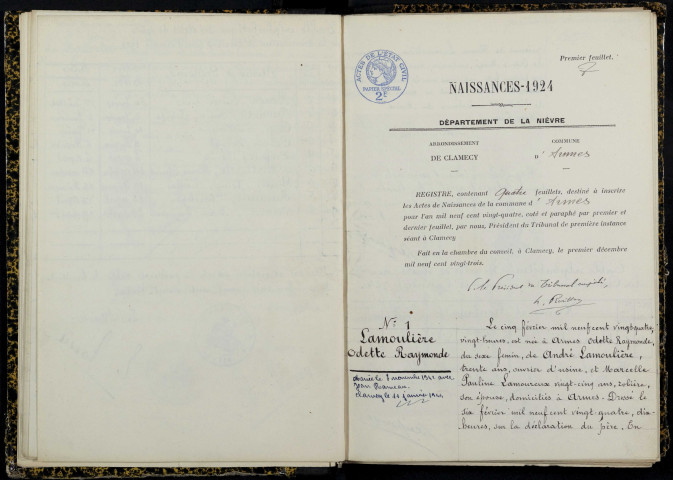 Premier feuillet.
ACTES DE L'ÉTAT CIVIL
PAPIER SPÉCIAL
2F
NAISSANCES-1924
DÉPARTEMENT DE LA NIÈVRE
ARRONDISSEMENT
DE CLAMECY
COMMUNE
D' Armes
REGISTRE, contenant quatre feuillets, destiné à inscrire
les Actes de Naissances de la commune d' Armes
pour l'an mil neuf cent vingt-quatre, coté et paraphé par premier et
dernier feuillet, par nous, Président du Tribunal de première instance
séant à Clamecy
Fait en la chambre du conseil, à Clamecy, le premier décembre
mil neuf cent vingt-trois.
Le Président du Tribunal
N° 1
Lamoulière
Odette Raymonde
Mariée le 8 novembre 1941 avec
Jean
Clamecy le 11 janvier
Le cinq février mil neuf cent vingt quatre,
vingt heures, est née à Armes Odette Raymonde,
du sexe féminin, de André Lamoulière,
trente ans, ouvrier d'usine, et Marcelle
Pauline Lamoureux vingt-cinq ans,
son épouse, domiciliés à Armes - Dressé le
six février mil neuf cent vingt-quatre, dix
heures, sur la déclaration du père. En